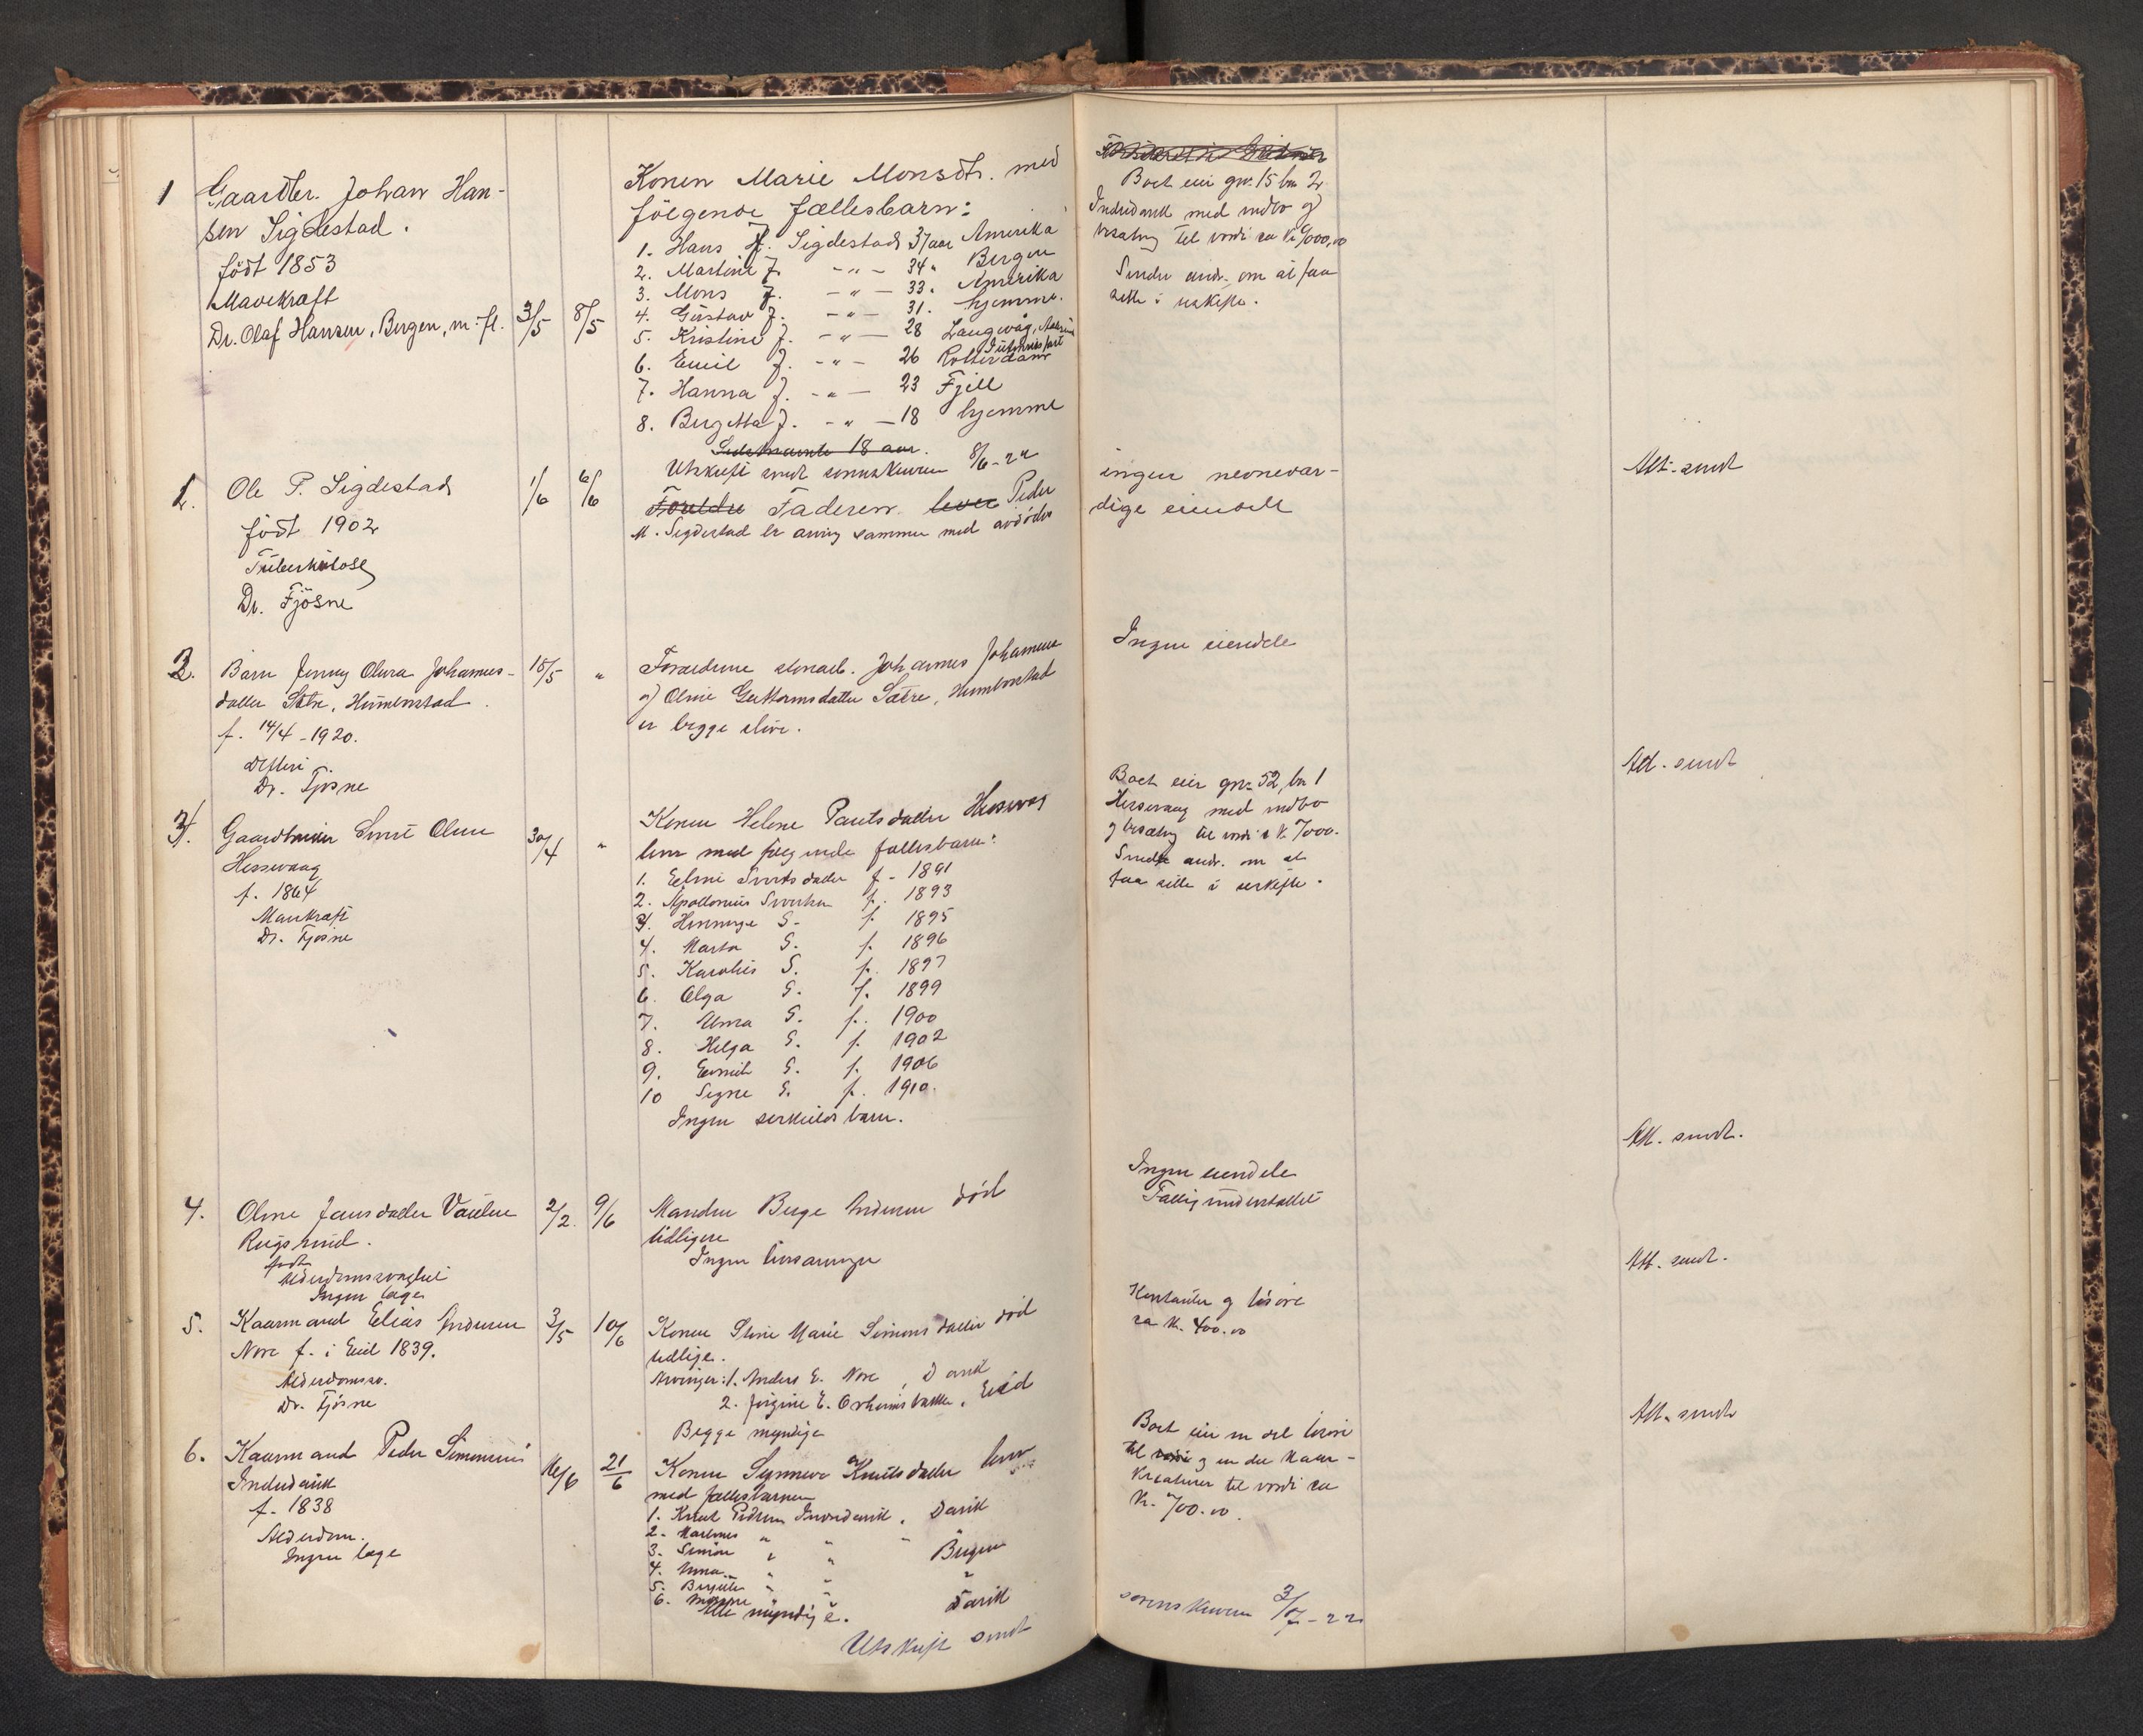 1 Gaardbr. Johan Han-
sen Sigdestad.
født 1853
Mavekræft
Dr. Olaf Hansen, Bergen, m. fl. 3/5 8/5
Konen Marie Monsdtr. med
følgende fællesbarn:
1. Hans J. Sigdestad 37 aar Amerika
2. Martine J. -"- 34 " Bergen
3. Mons J. -"- 33. Amerika
4. Gustav J. -"- 31. hjemme.
5. Kristine J. -"- 28 Langevåg,
6. Emil J. -"- 26 Rotterdam
7. Hanna J. -"- 23 Fjell
8. Bergitta J. -"- 18 hjemme
18 aar.
Utskrift sendt sorenskriveren 8/6-22
Boet eier gnr. 15 bn 2
Indredavik med indbo og
besætning til værdi ca Kr 6000,00
Sender andr. om at faa
sitte i uskifte.
1. Ole P. Sigdestad 1/6 6/6
født 1902
Tuberkulose
Dr. Fjøsne
Forældre Faderen lever Peder
M. Sigdestad er arving sammen med avdødes
ingen nevnevær-
dige eiendele
Att. sendt
2. Barn Jenny Olina Johannes- 15/5 "
datter Sætre, Humlenstad
f. 14/4-1920.
Difteri
Dr. Fjøsne
Forældrene Johannes Johannesen
og Oline Guttormsdatter Sætre, Humlenstad
er begge ilive.
Ingen eiendele
Att. sendt
3. Gaardbruker Sivert Olsen 30/4 "
Hessevaag
f. 1864
Mavekræft
Dr. Fjøsne
Konen Helene Paulsdatter Hessevag
lever med følgende fællesbarn:
1. Eline Sivertsdatter f. 1891
2. Apollonius Sivertsen f. 1893
3. Henninge S. f. 1895
4. Marta S. f. 1896
5. Karolius S. f. 1897
6. Olga S. f. 1899
7. Anna S. f. 1900
8. Helga S. f. 1902
9. S. f. 1906
10 Signe S. f. 1910.
Ingen serkuldsbarn.
Boet eier gnr 52, bn 1
Hessevaag med indbo
og besætning til værdi Kr. 7000.
Sender andr. om at
faa sitte i uskifte.
Att. sendt.
4. Oline Jansdatter 2/2. 9/6
Rugsund.
født
Alderdomssvaghet
Ingen læge
Manden Berge Andersen død
tidligere
Ingen livsarvinger
Ingen eiendele
Fattigunderstøttet
Att. sendt.
5. Kaarmand Elias Andersen 3/5 10/6
Nore f. i Eid 1839.
Alderdomssv.
Dr. Fjøsne
Konen Stine Marie Simonsdatter død
tidlige.
Arvinger: 1. Anders E. Nore, Davik
2. Jørgine E. Orheimsbakke, Eid
Begge myndige
Kontanter og løsøre
ca Kr. 400.00
Att. sendt
6. Kaarmand Peder Simonsen 16/6 21/6
Indredavik
f. 1838
Alderdom.
Ingen læge
Konen Synneve Knutsdatter lever
med fællesbarnene
1. Knut Pedersen Indredavik, Davik
2. Martinus " " "
3. Simon " " Bergen
4. Anna " " "
5. Bergitte " "
6. Davik
Alle myndige.
Boet eier en del løsøre
til værdi og en del kaar-
kreaturer til værdi ca
Kr. 700.00.
Utskrift sendt sorenskriveren 3/7-22